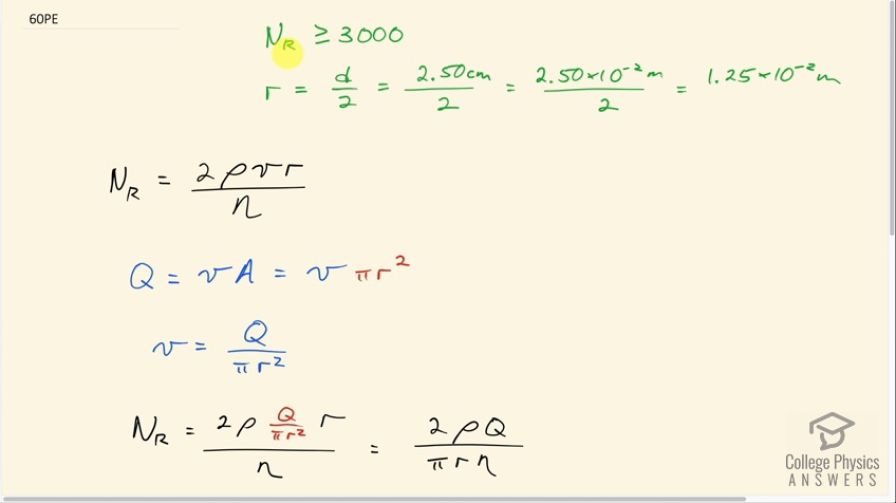 60PE
N_R ≥ 3000
r = d/2 = 2.50 cm/2 = 2.50×10⁻² m/2 = 1.25×10⁻² m
N_R = 2ρvr/η
Q = vA = vπr²
v = Q/πr²
N_R = 2ρ Q/πr² r/η = 2ρQ/πrη
College Physics
ANSWERS